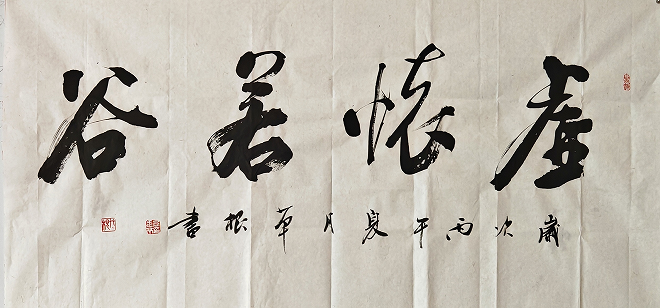 虚怀若谷
岁次丙午夏月草根书